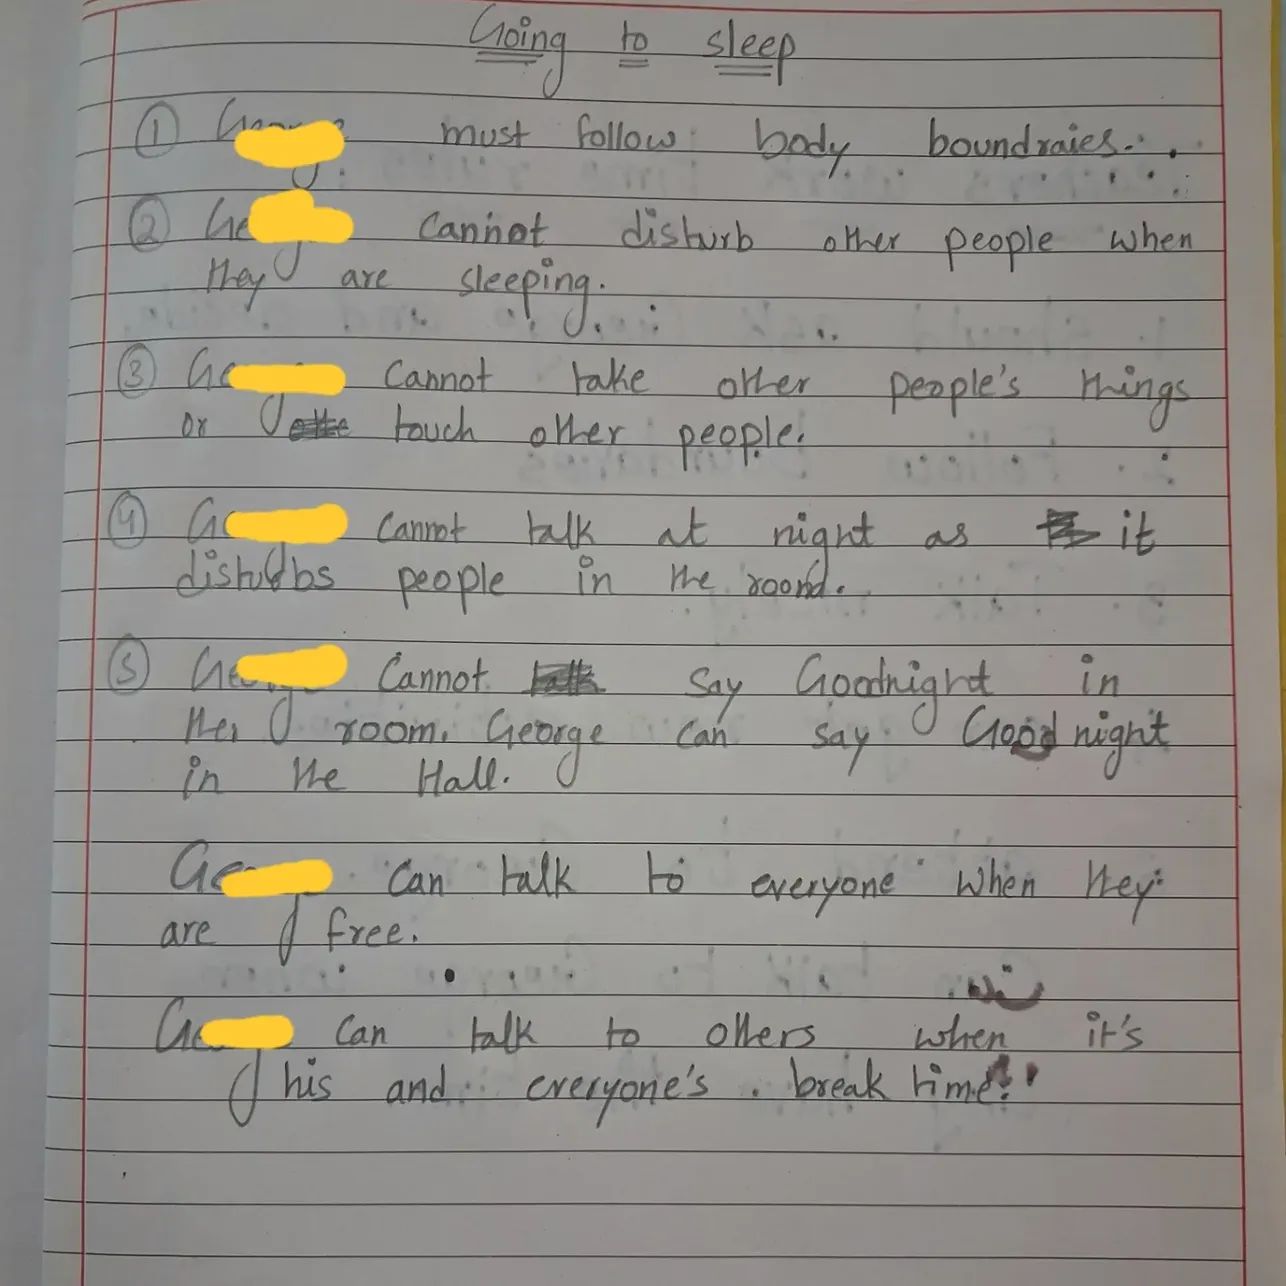 Going to sleep
① must follow body boundraies.
② cannot disturb other people when
they are sleeping.
③ cannot take other people's things
or touch other people.
④ cannot talk at night as it
disturbs people in the room.
⑤ cannot say Goodnight in
room. George can say Goodnight
in the Hall.
can talk to everyone when they
are free.
can talk to others when it's
his and everyone's break time.